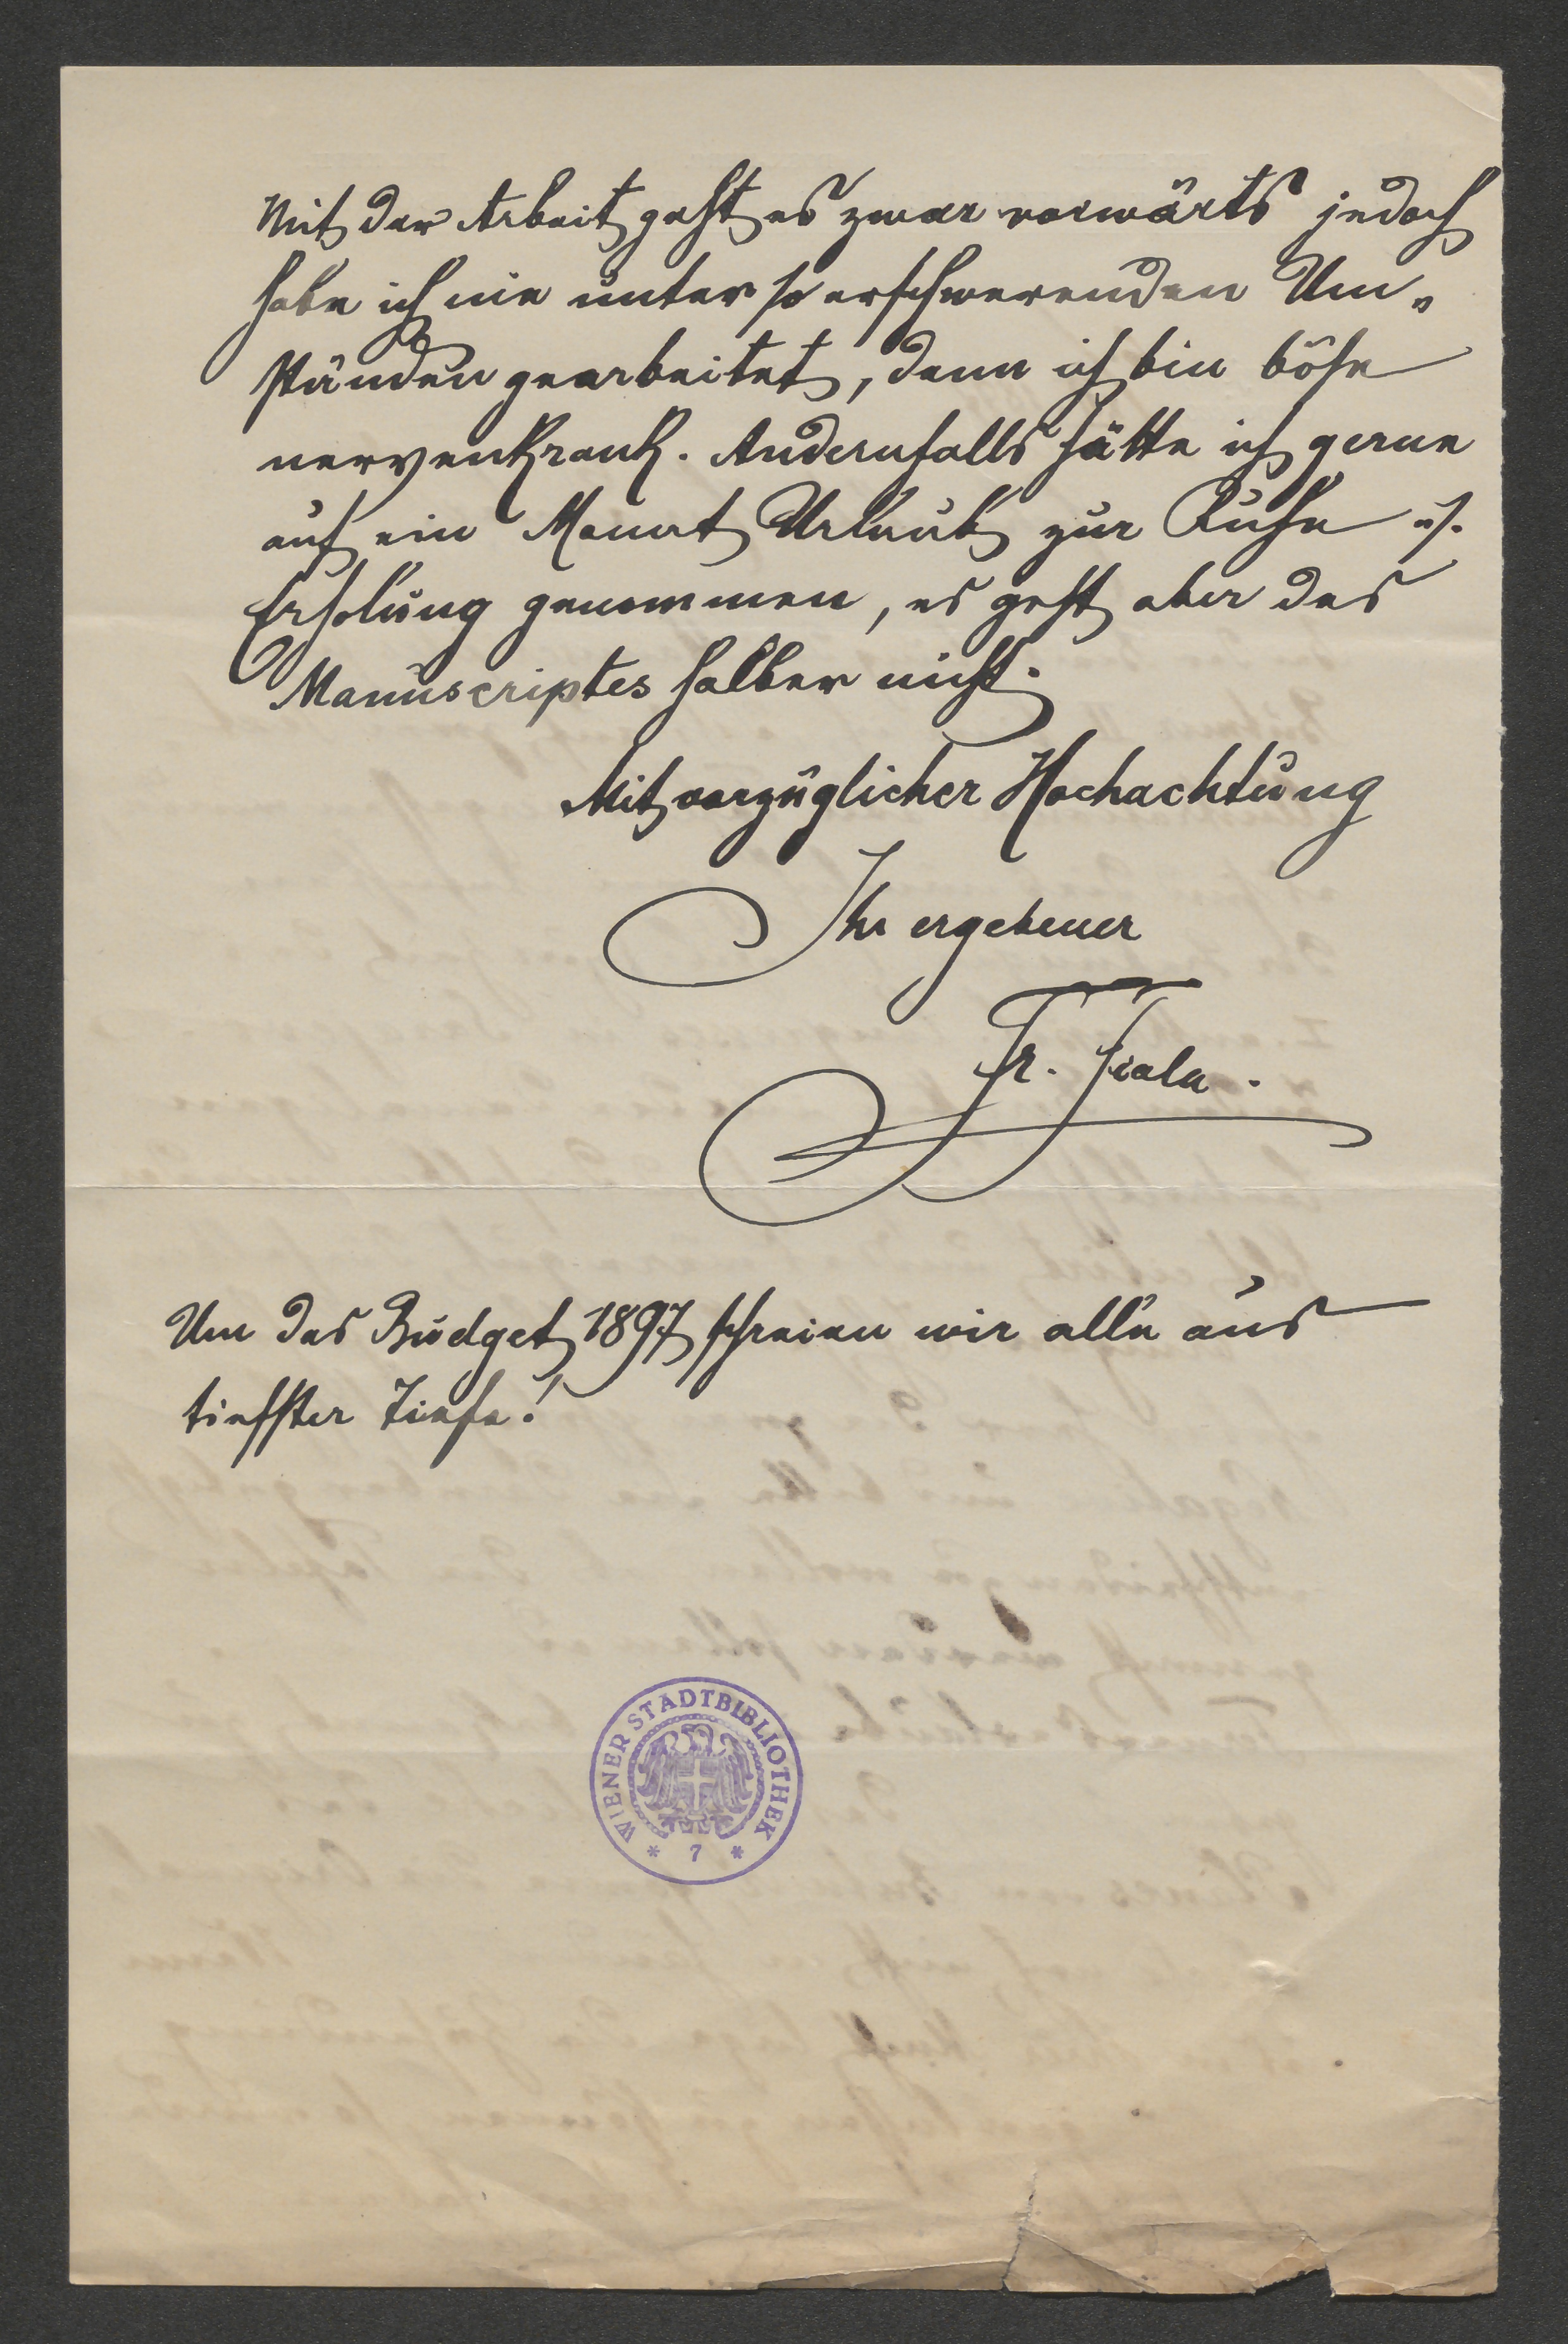 Mit der Arbeit geht es zwar vorwärts jedoch
habe ich nie unter so erschwerenden Um-
ständen gearbeitet, denn ich bin böse
nervenkrank. Andernfalls hätte ich gerne
auf ein Monat Urlaub zur Ruhe u.
Erholung genommen, es geht aber des
Manuscriptes halber nicht.
Mit vorzüglicher Hochachtung
Ihr ergebener
Fr. Fiala.
Um das Budget 1897 schreien wir alle aus
tiefster Tiefe!
WIENER STADTBIBLIOTHEK
* 7 *